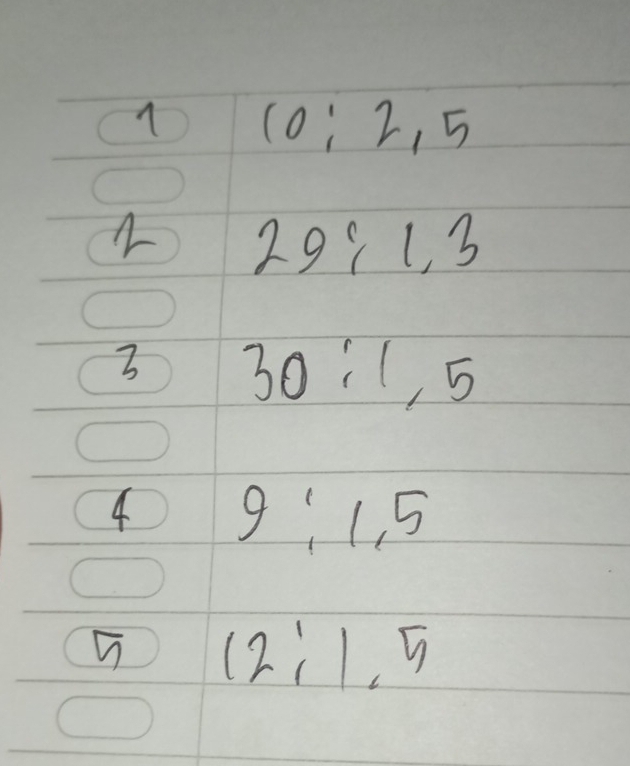 1 10 : 2,5
2 29 : 1,3
3 30 : 1,5
4 9 : 1,5
5 12 : 1,5